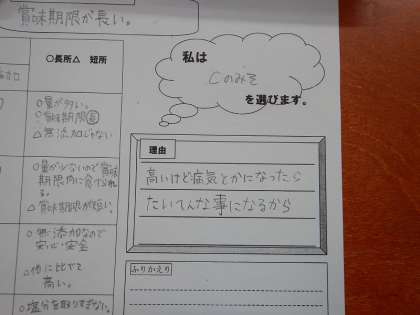 賞味期限が長い。
○長所△ 短所
○量が多い。
○賞味期限長
△無添加じゃない
○量が少ないので賞味
期限内に食べられ
る。
△賞味期限が短い。
○無添加なので
安心・安全
△他に比べて
高い。
○塩分を取りすぎない。
私は
Cのみそ
を選びます。
理由
高いけど病気とかになったら
たいへんな事になるから
ふりかえり